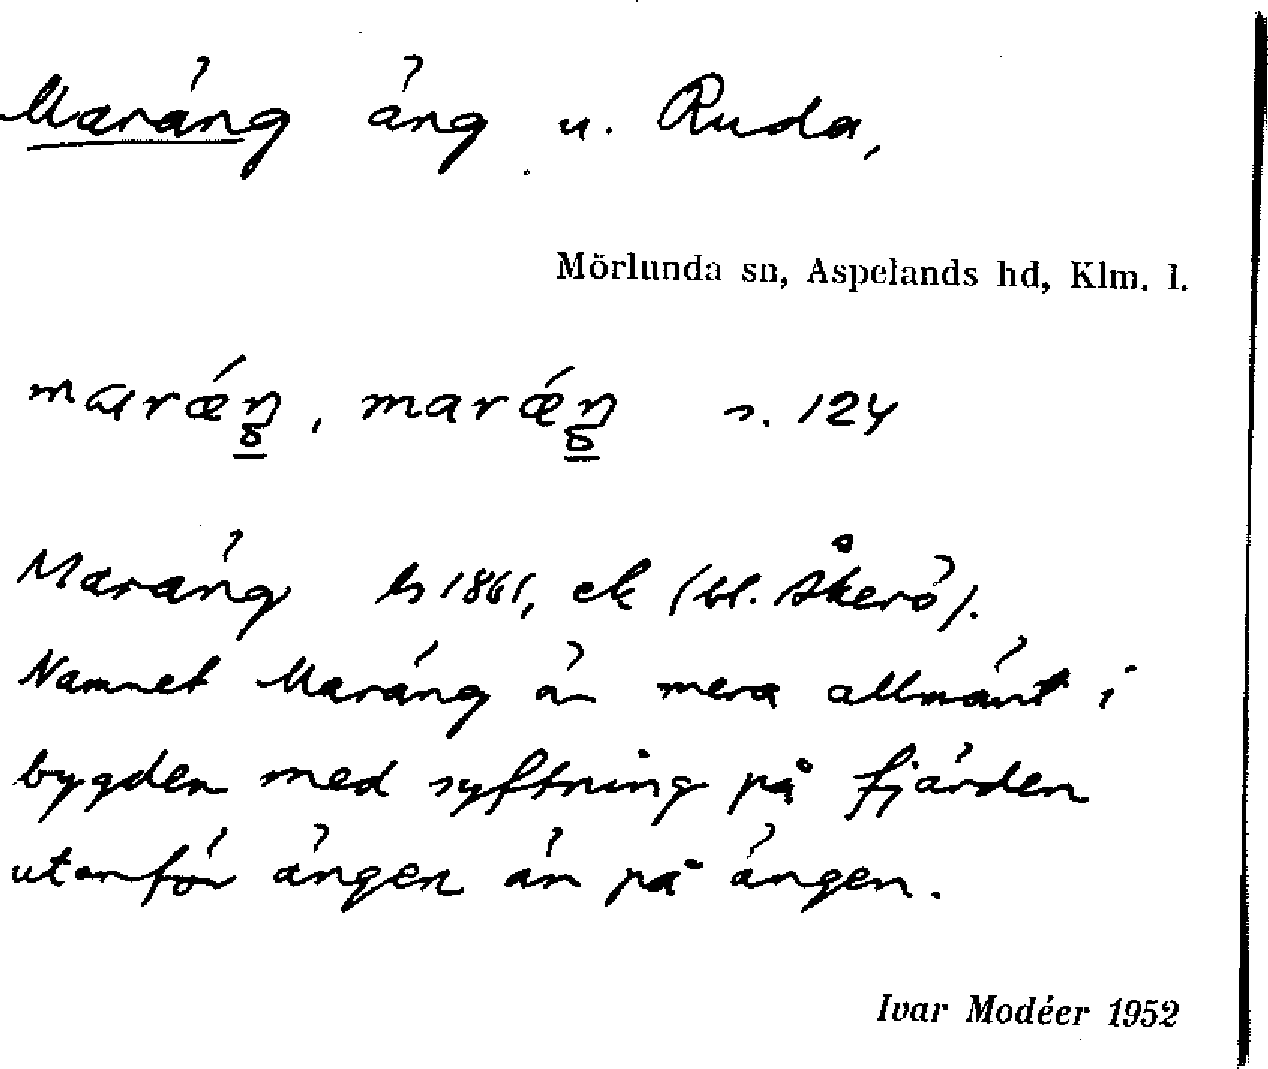 Maräng äng u. Ruda,
Mörlunda sn, Aspelands hd, Klm. l.
maræŋ́, maræŋ́ s. 124
Maräng ls 1861, ek (bl. Åkerö).
Namnet Maräng är mera allmänt i
bygden med syftning på fjärden
utanför ängen än på ängen.
Ivar Modéer 1952